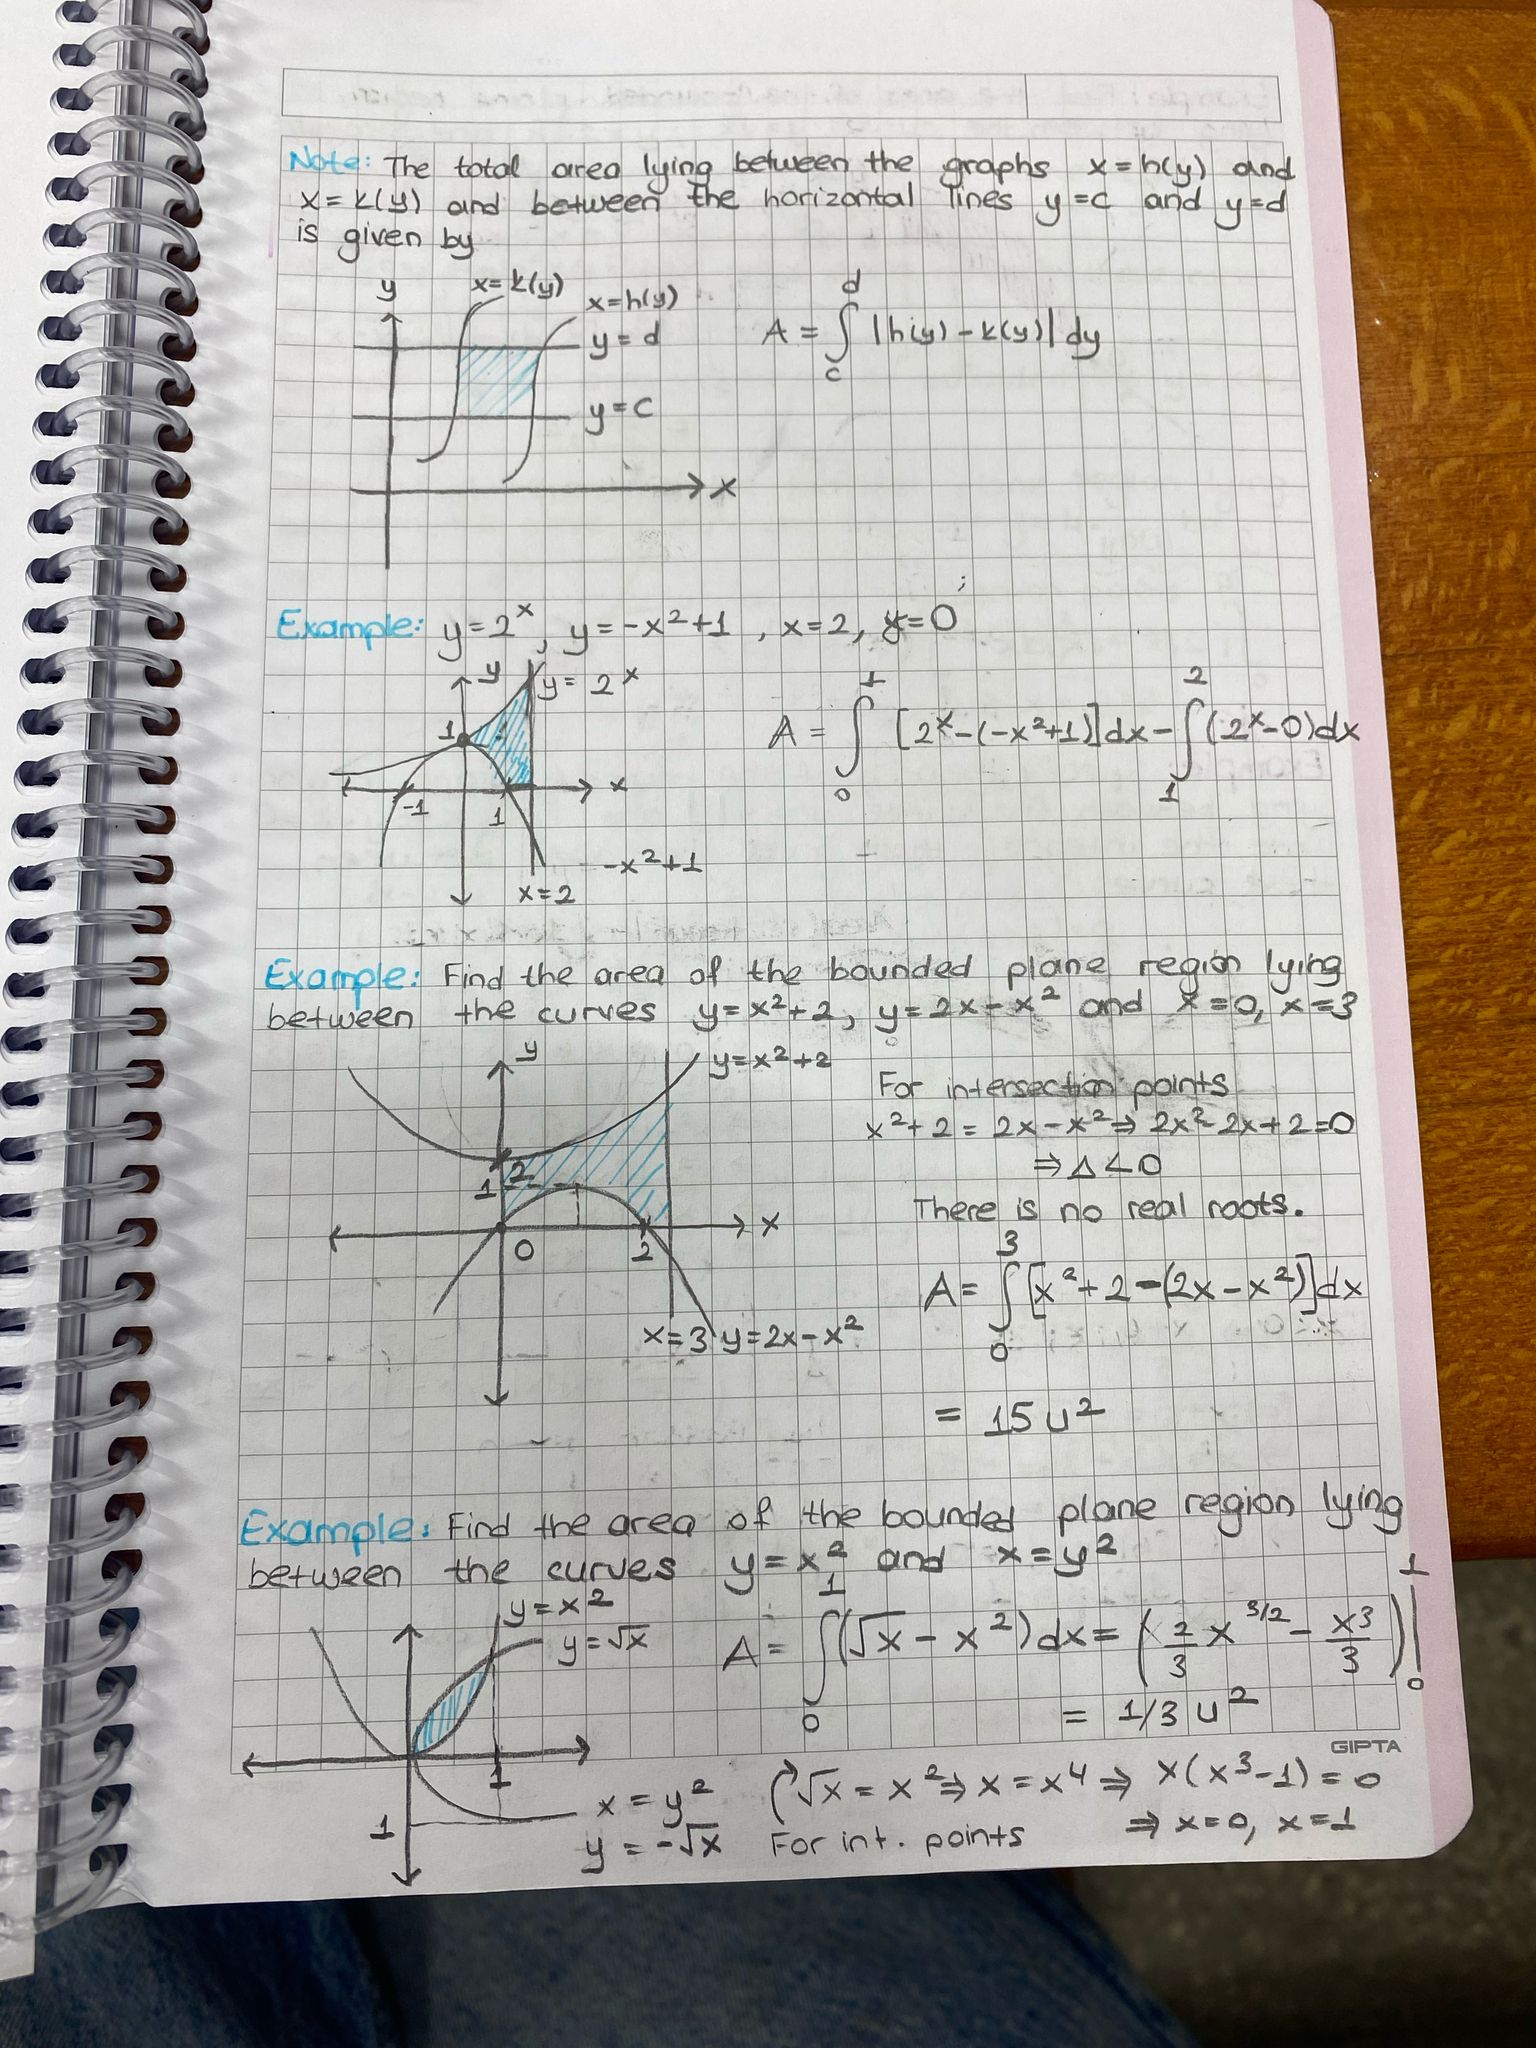 Note: The total area lying between the graphs x=h(y) and
x=k(y) and between the horizontal lines y=c and y=d
is given by
y
x=k(y)
x=h(y)
y=d
y=c
x
A = ∫_c^d |h(y)-k(y)| dy
Example: y=2^x, y=-x²+1, x=2, y=0
y
y=2^x
1
-1
1
x
-x²+1
x=2
A = ∫_0^1 [2^x-(-x²+1)]dx - ∫_1^2 (2^x-0)dx
Example: Find the area of the bounded plane region lying
between the curves y=x²+2, y=2x-x² and x=0, x=3
y
y=x²+2
2
1
0
2
x
x=3 y=2x-x²
For intersection points
x²+2 = 2x-x² ⇒ 2x²-2x+2=0
⇒ Δ<0
There is no real roots.
A = ∫_0^3 [x²+2-(2x-x²)]dx
= 15 u²
Example: Find the area of the bounded plane region lying
between the curves y=x² and x=y²
y=x²
y=√x
1
1
x=y²
y=-√x
A = ∫_0^1 (√x - x²)dx = (2/3 x^3/2 - x³/3)|_0^1
= 1/3 u²
GIPTA
√x = x² ⇒ x=x⁴ ⇒ x(x³-1)=0
For int. points
⇒ x=0, x=1